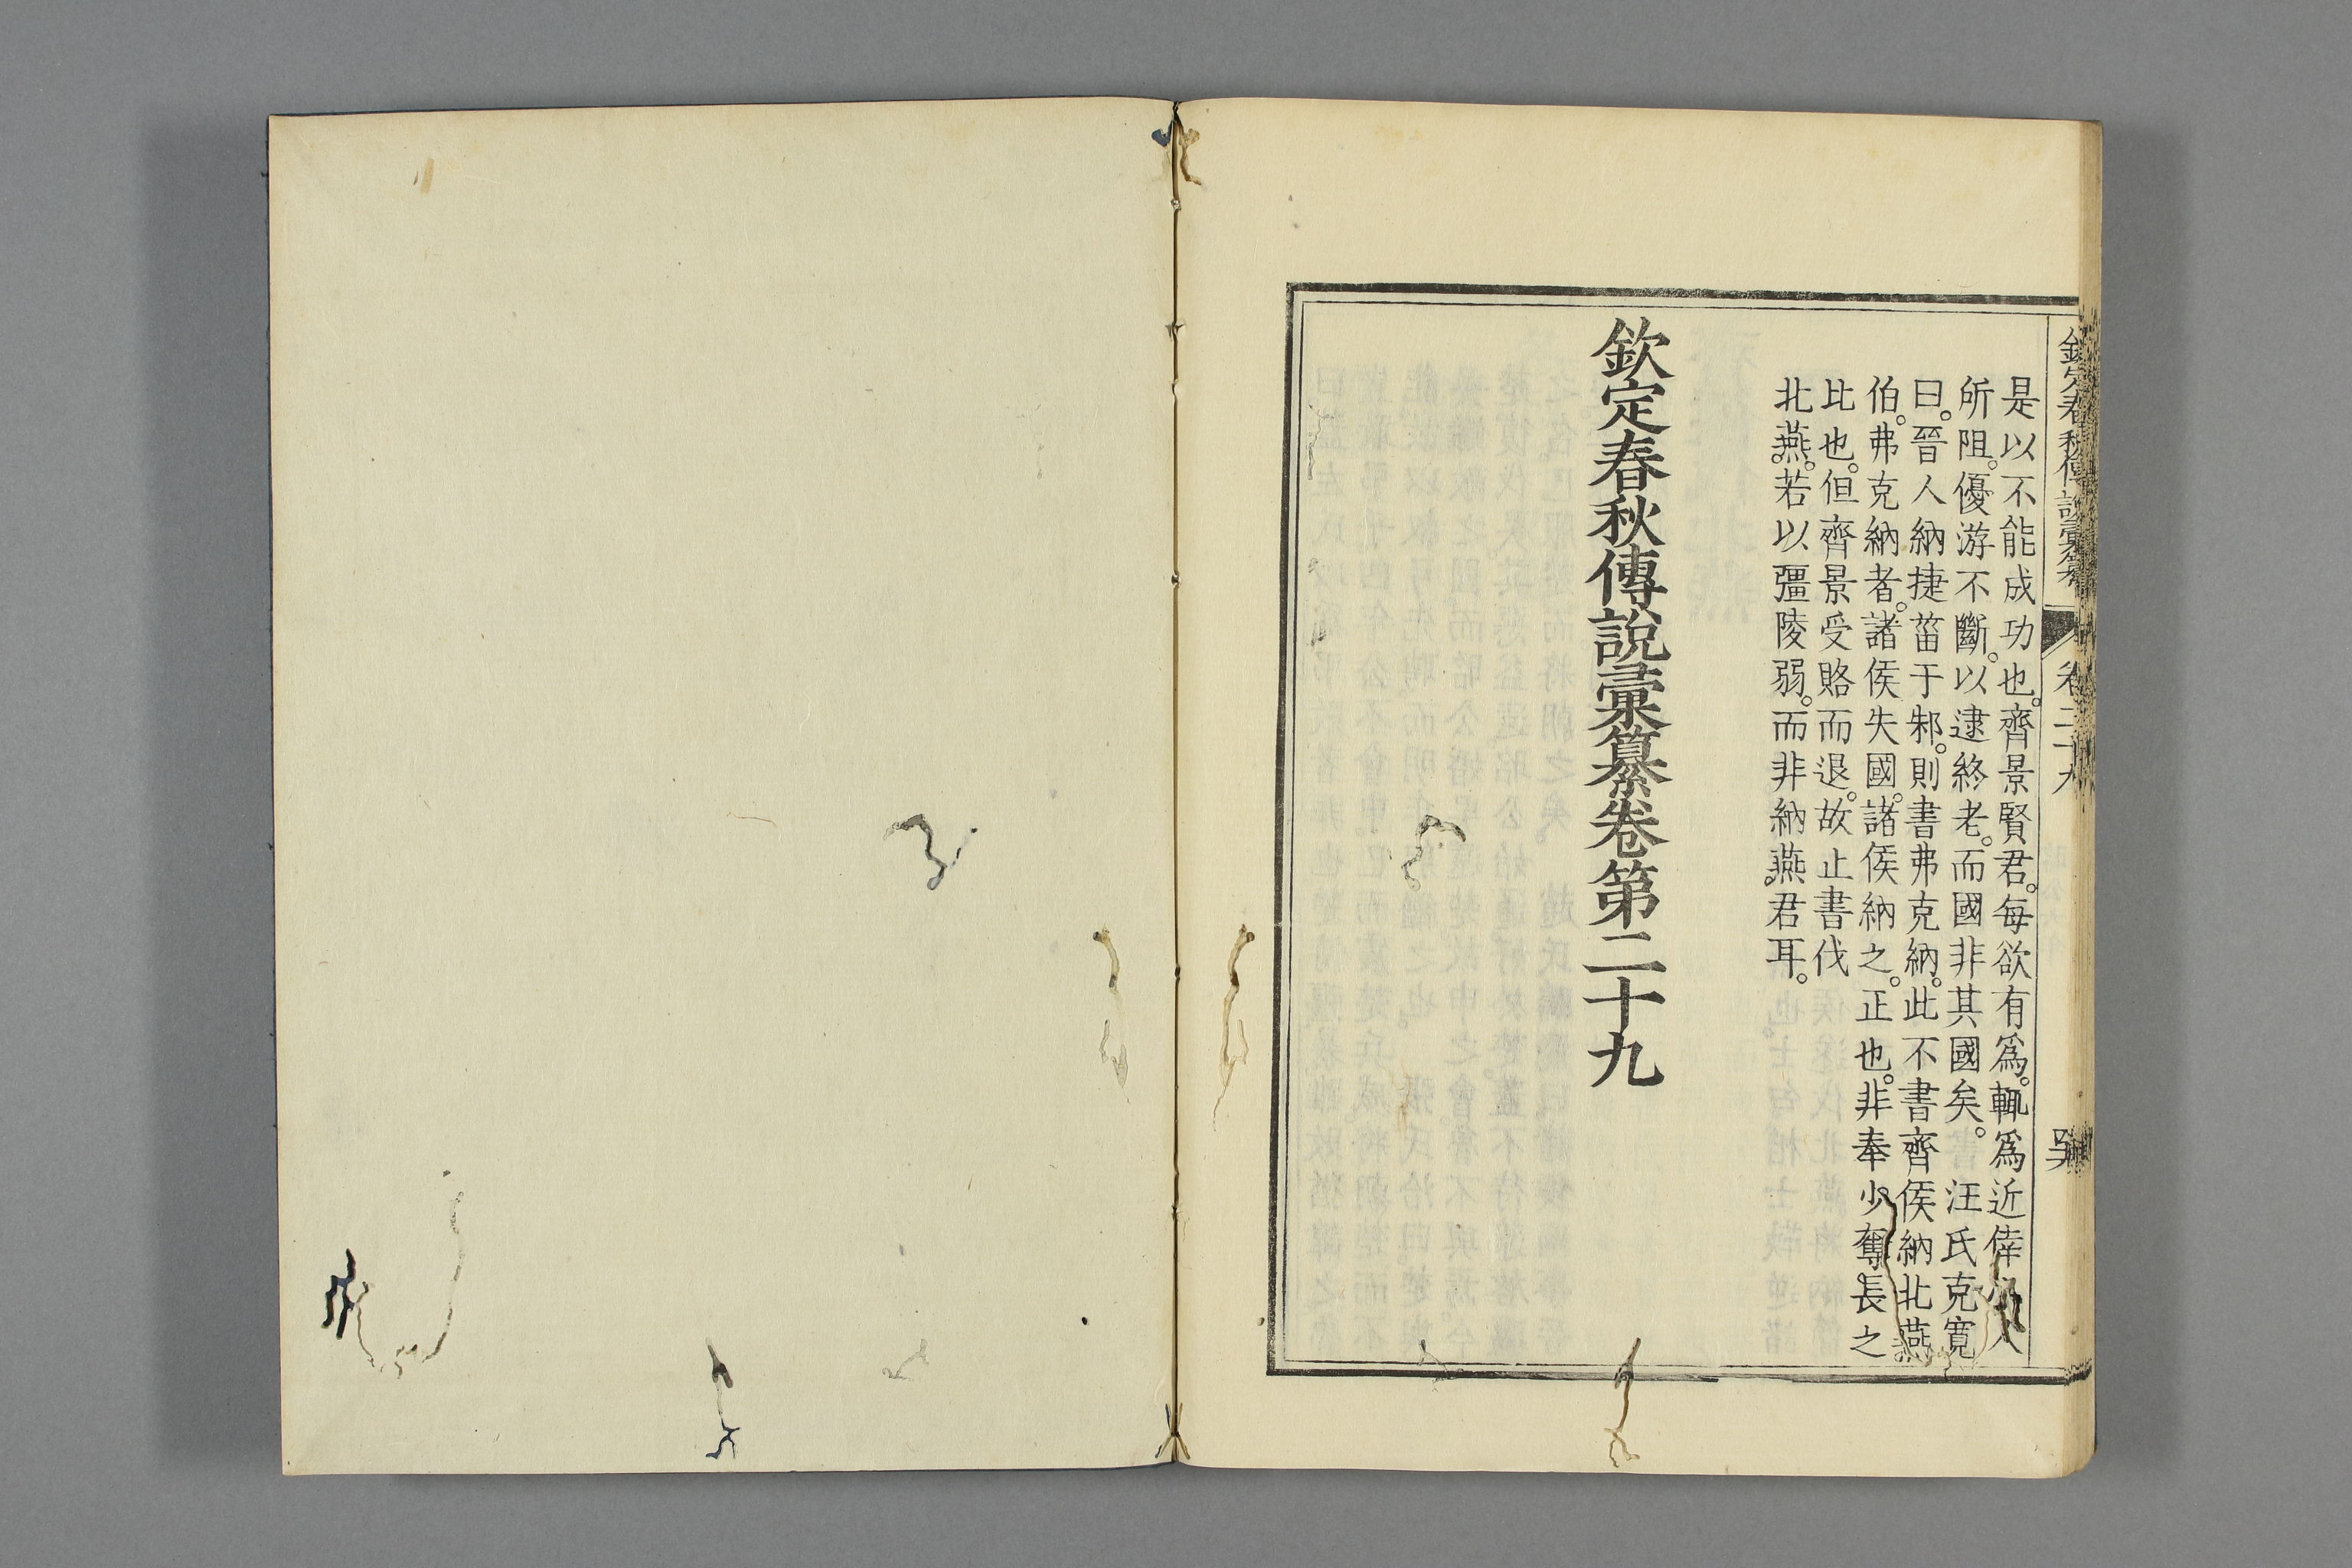 欽定春秋傳說彙纂 卷二十九
是以不能成功也。齊景賢君。每欲有爲。輒爲近倖小人
所阻。優游不斷。以逮終老。而國非其國矣。 汪氏克寬
曰。晉人納捷菑于邾。則書弗克納。此不書齊侯納北燕
伯。弗克納者。諸侯失國。諸侯納之。正也。非奉少奪長之
比也。但齊景受賂而退。故止書伐
北燕。若以彊陵弱。而非納燕君耳。
欽定春秋傳說彙纂卷第二十九